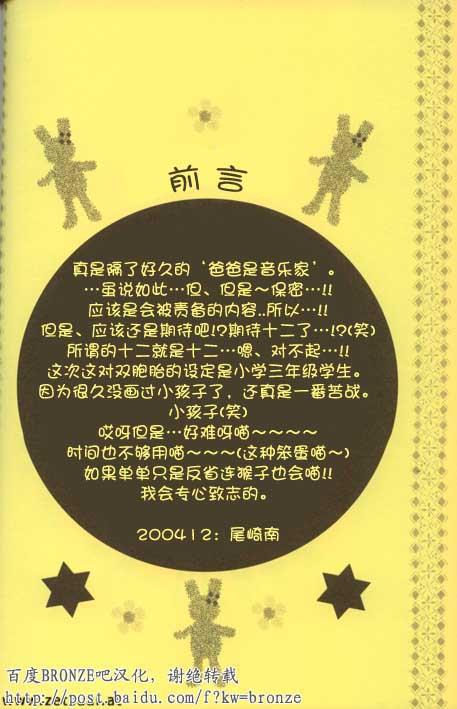 前言
真是隔了好久的‘爸爸是音乐家’。
…虽说如此…但、但是～保密…!!
应该是会被责备的内容..所以…!!
但是、应该还是期待吧!?期待十二了…!?(笑)
所谓的十二就是十二…嗯、对不起…!!
这次这对双胞胎的设定是小学三年级学生。
因为很久没画过小孩子了，还真是一番苦战。
小孩子(笑)
哎呀但是…好难呀喵～～～～
时间也不够用喵～～～(这种笨蛋喵～)
如果单单只是反省连猴子也会喵!!
我会专心致志的。
200412：尾崎南
百度BRONZE吧汉化，谢绝转载
http://post.baidu.com/f?kw=bronze